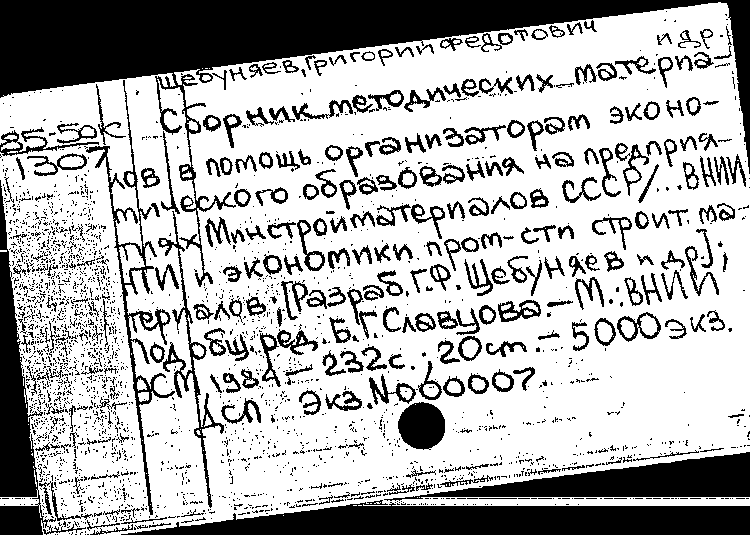 Щебуняев, Григорий Федотович и др.
85-50к
1307
Сборник методических материа-
лов в помощь организаторам эконо-
мического образования на предприя-
тиях Минстройматериалов СССР/...ВНИИ
НТИ и экономики пром-сти строит. ма-
териалов; [Разраб. Г.Ф. Щебуняев и др.];
Под общ. ред. Б.Г. Славцова. - М.: ВНИИ
ЭСМ, 1984 - 232с.; 20см. - 5000 экз.
ДСП. Экз. №000007.